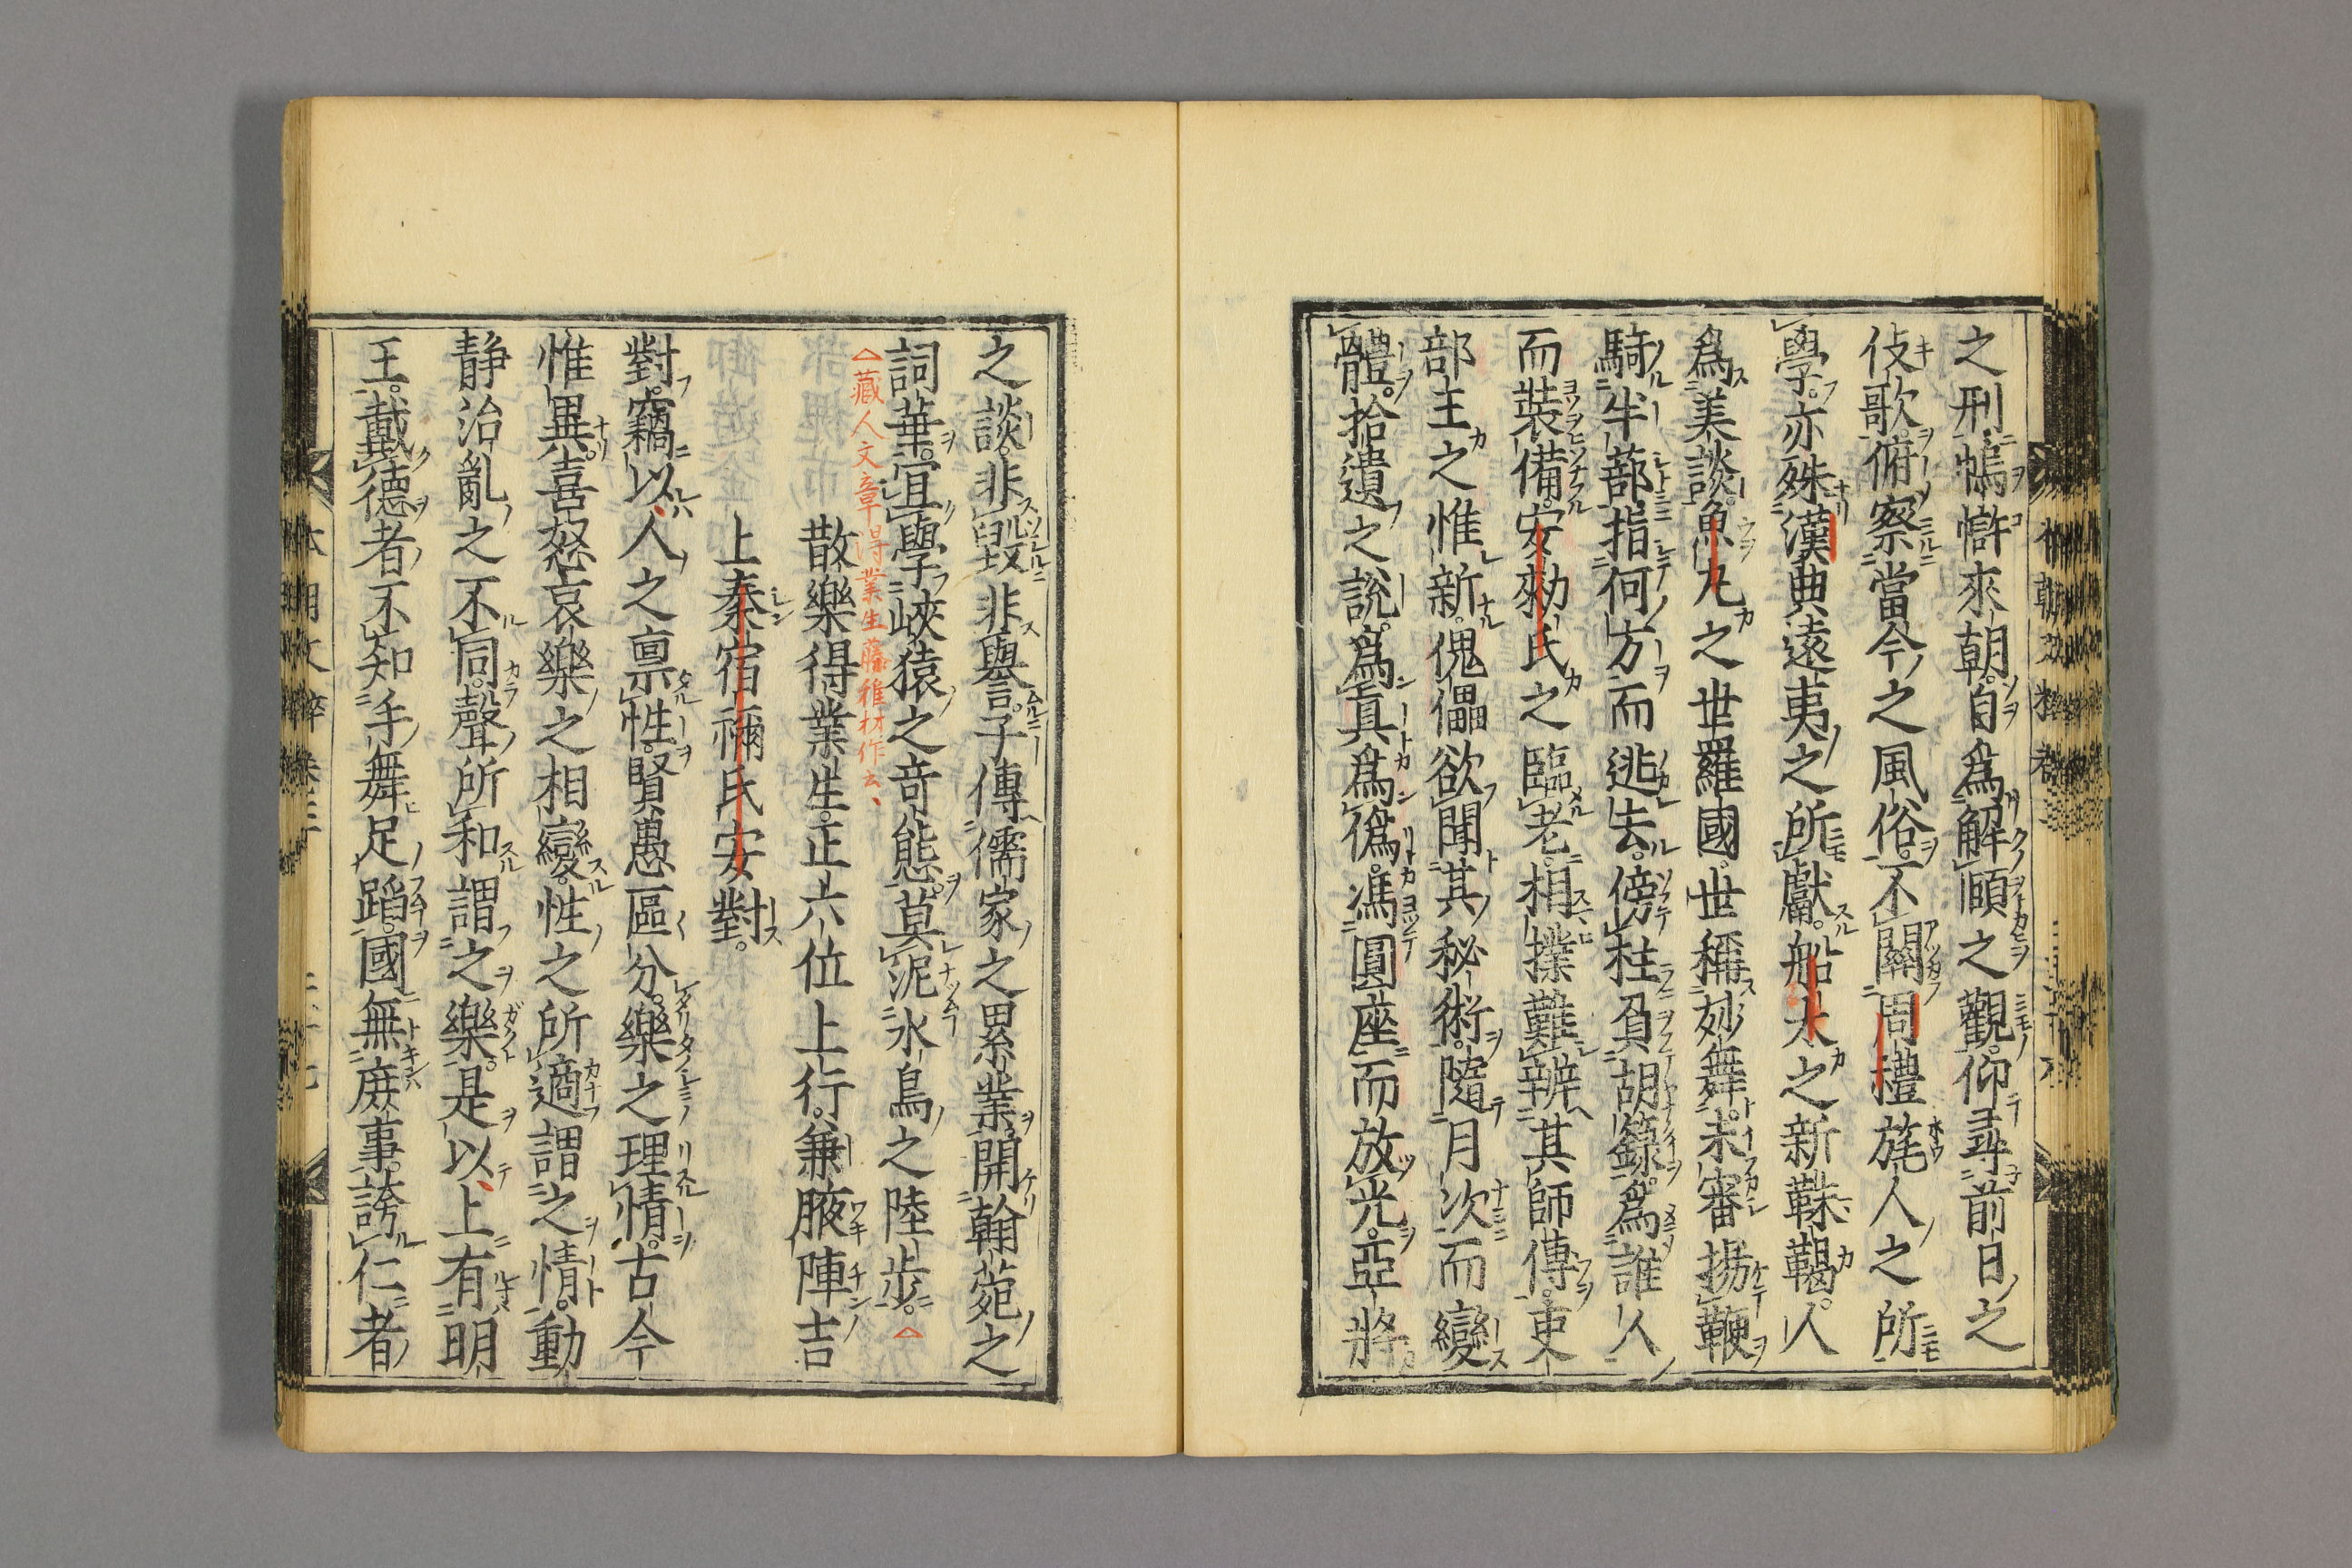 之刑鴆澥來朝自爲解頤之觀仰尋前日之
伎歌俯察當今之風俗不關周禮旄人之所
學亦殊漢典遠夷之所獻船木之新靺鞨人
爲美談魚丸之世羅國世稱妙舞未審揚鞭
騎牛蔀指何方而逃去傍柱負胡籙爲誰人
而裝備安勑氏之臨老相撲難辨其師傳吏
部主之惟新傀儡欲聞其秘術隨月次而變
體拾遺之説爲眞爲僞馮圓座而放光亞將
之談非毀非譽子傳儒家之累業開翰菀之
詞華宜學峽猿之奇態莫泥水鳥之陸步
△藏人文章得業生藤雅材作云、
散樂得業生正六位上行兼腋陣吉
上秦宿禰氏安對
對竊以人之禀性賢愚區分樂之理情古今
惟異喜怒哀樂之相變性之所適謂之情動
静治亂之不同聲所和謂之樂是以上有明
王戴德者不知手舞足蹈國無庶事誇仁者
本朝文粹卷三